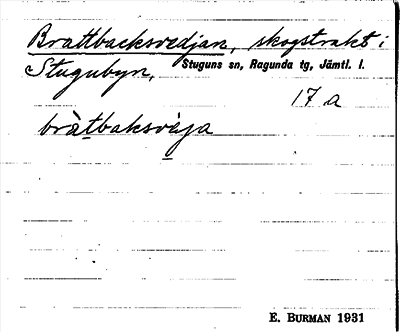 Brattbacksvedjan, skogstrakt i
Stugubyn, Stuguns sn, Ragunda tg, Jämtl. l.
17 a
bràtbaksvèja
E. BURMAN 1931